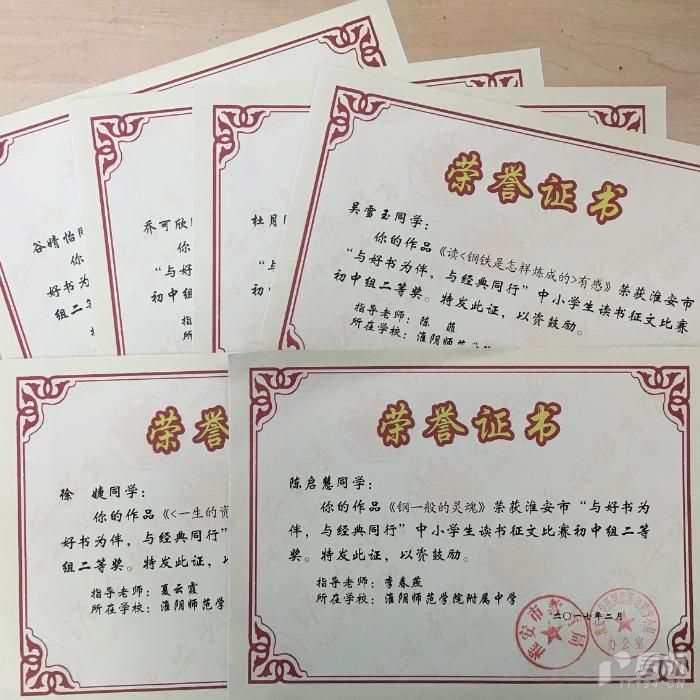 谷婧怡同
你
好书为
组二等
乔可欣
你
“与好
初中组
指
所
杜月
你
“与
初中
指
所
荣誉证书
吴雪玉同学：
你的作品《读<钢铁是怎样炼成的>有感》荣获淮安市
“与好书为伴，与经典同行”中小学生读书征文比赛
初中组二等奖。特发此证，以资鼓励。
指导老师：陈
所在学校：淮阴师范
荣誉
徐 婕同学：
你的作品《<一生的资
好书为伴，与经典同行”
组二等奖。特发此证，以
指导老师：夏云霞
所在学校：淮阴师范学
荣誉证书
陈启慧同学：
你的作品《钢一般的灵魂》荣获淮安市“与好书为
伴，与经典同行”中小学生读书征文比赛初中组二等
奖。特发此证，以资鼓励。
指导老师：李春燕
所在学校：淮阴师范学院附属中学
二〇一七年二月
淮安市教育局
办公室